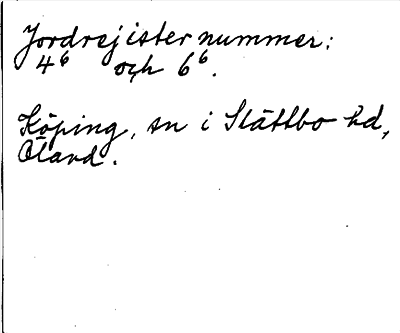 Jordrejister nummer:
4⁶ och 6⁶.
Köping, sn i Slättbo hd,
Öland.